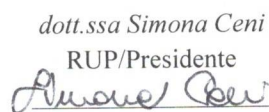 dott.ssa Simona Ceni
RUP/Presidente
Simona Ceni